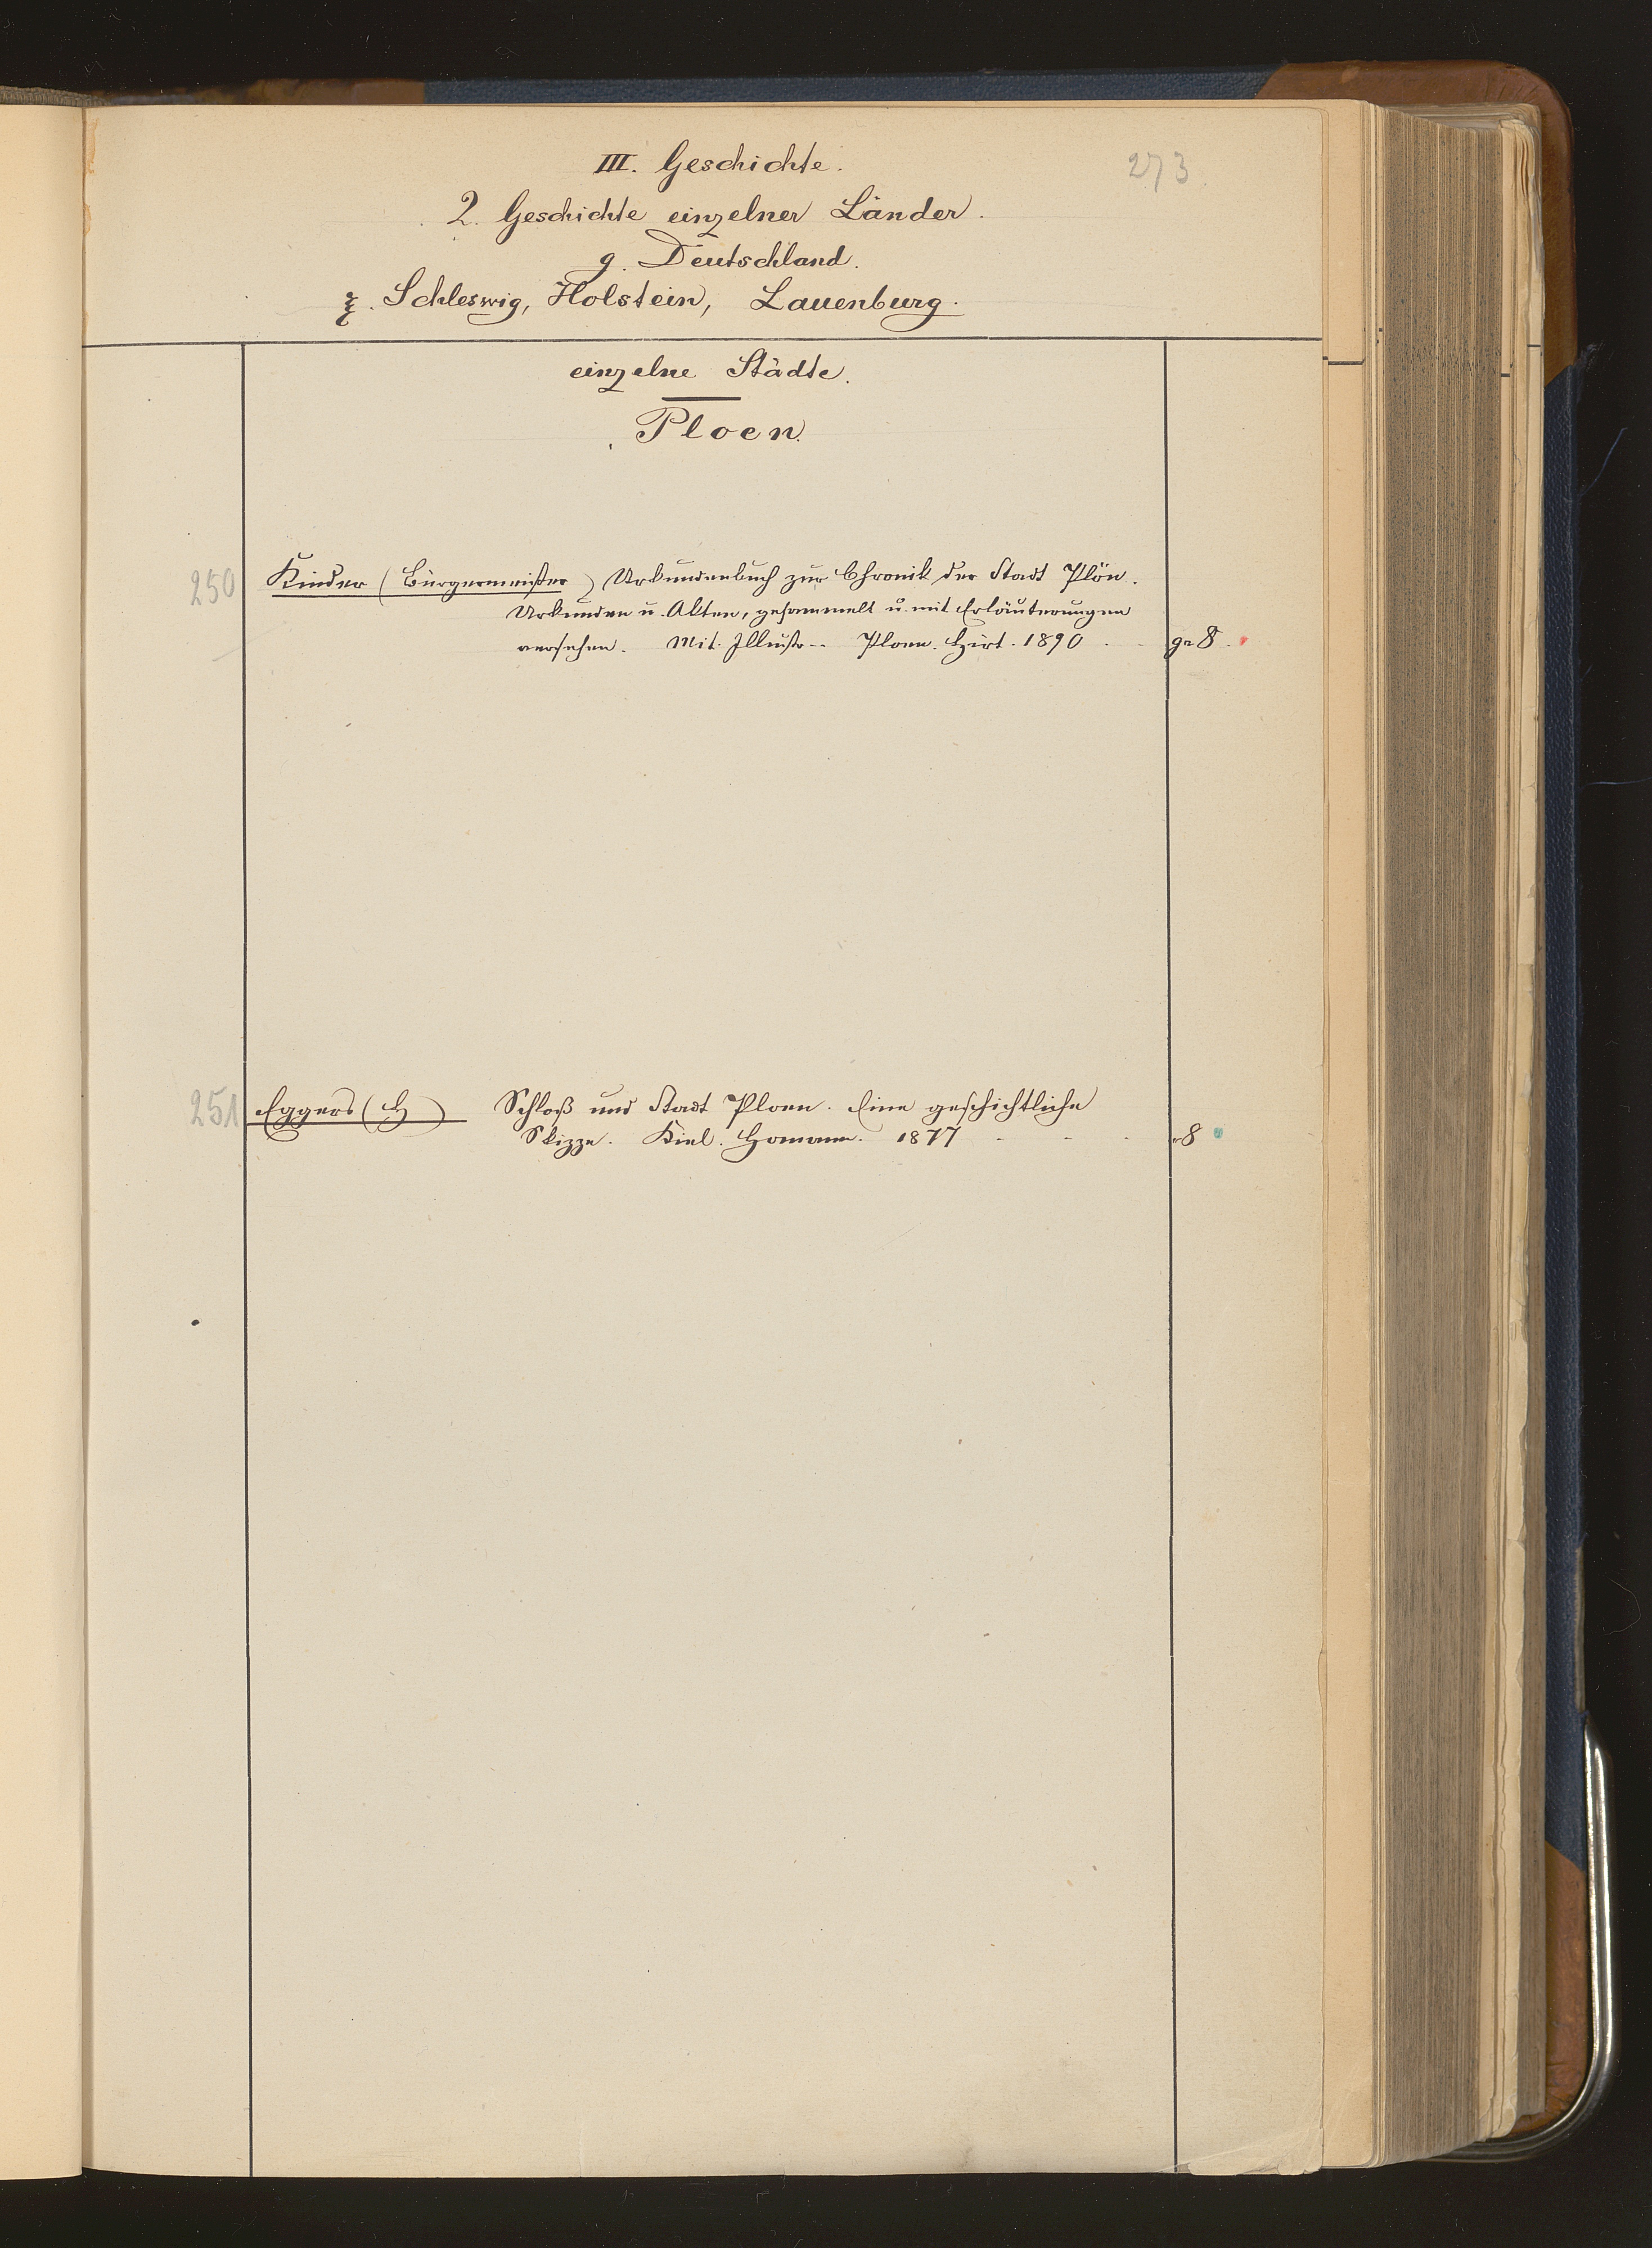 273
III. Geschichte.
2. Geschichte einzelner Länder.
g. Deutschland.
Schleswig, Holstein, Lauenburg.
einzelne Städte.
Ploen.
250 Kinder (Bürgermeister) Urkundenbuch zur Chronik der Stadt Plön.
Urkunden u. Akten, gesammelt u. mit Erläuterungen
versehen. Mit Illustr. - Ploen. Hirt. 1890 . . gr 8.
251 Eggers (H) Schloß und Stadt Ploen. Eine geschichtliche
Skizze. Kiel. Homann. 1877 - - . 8